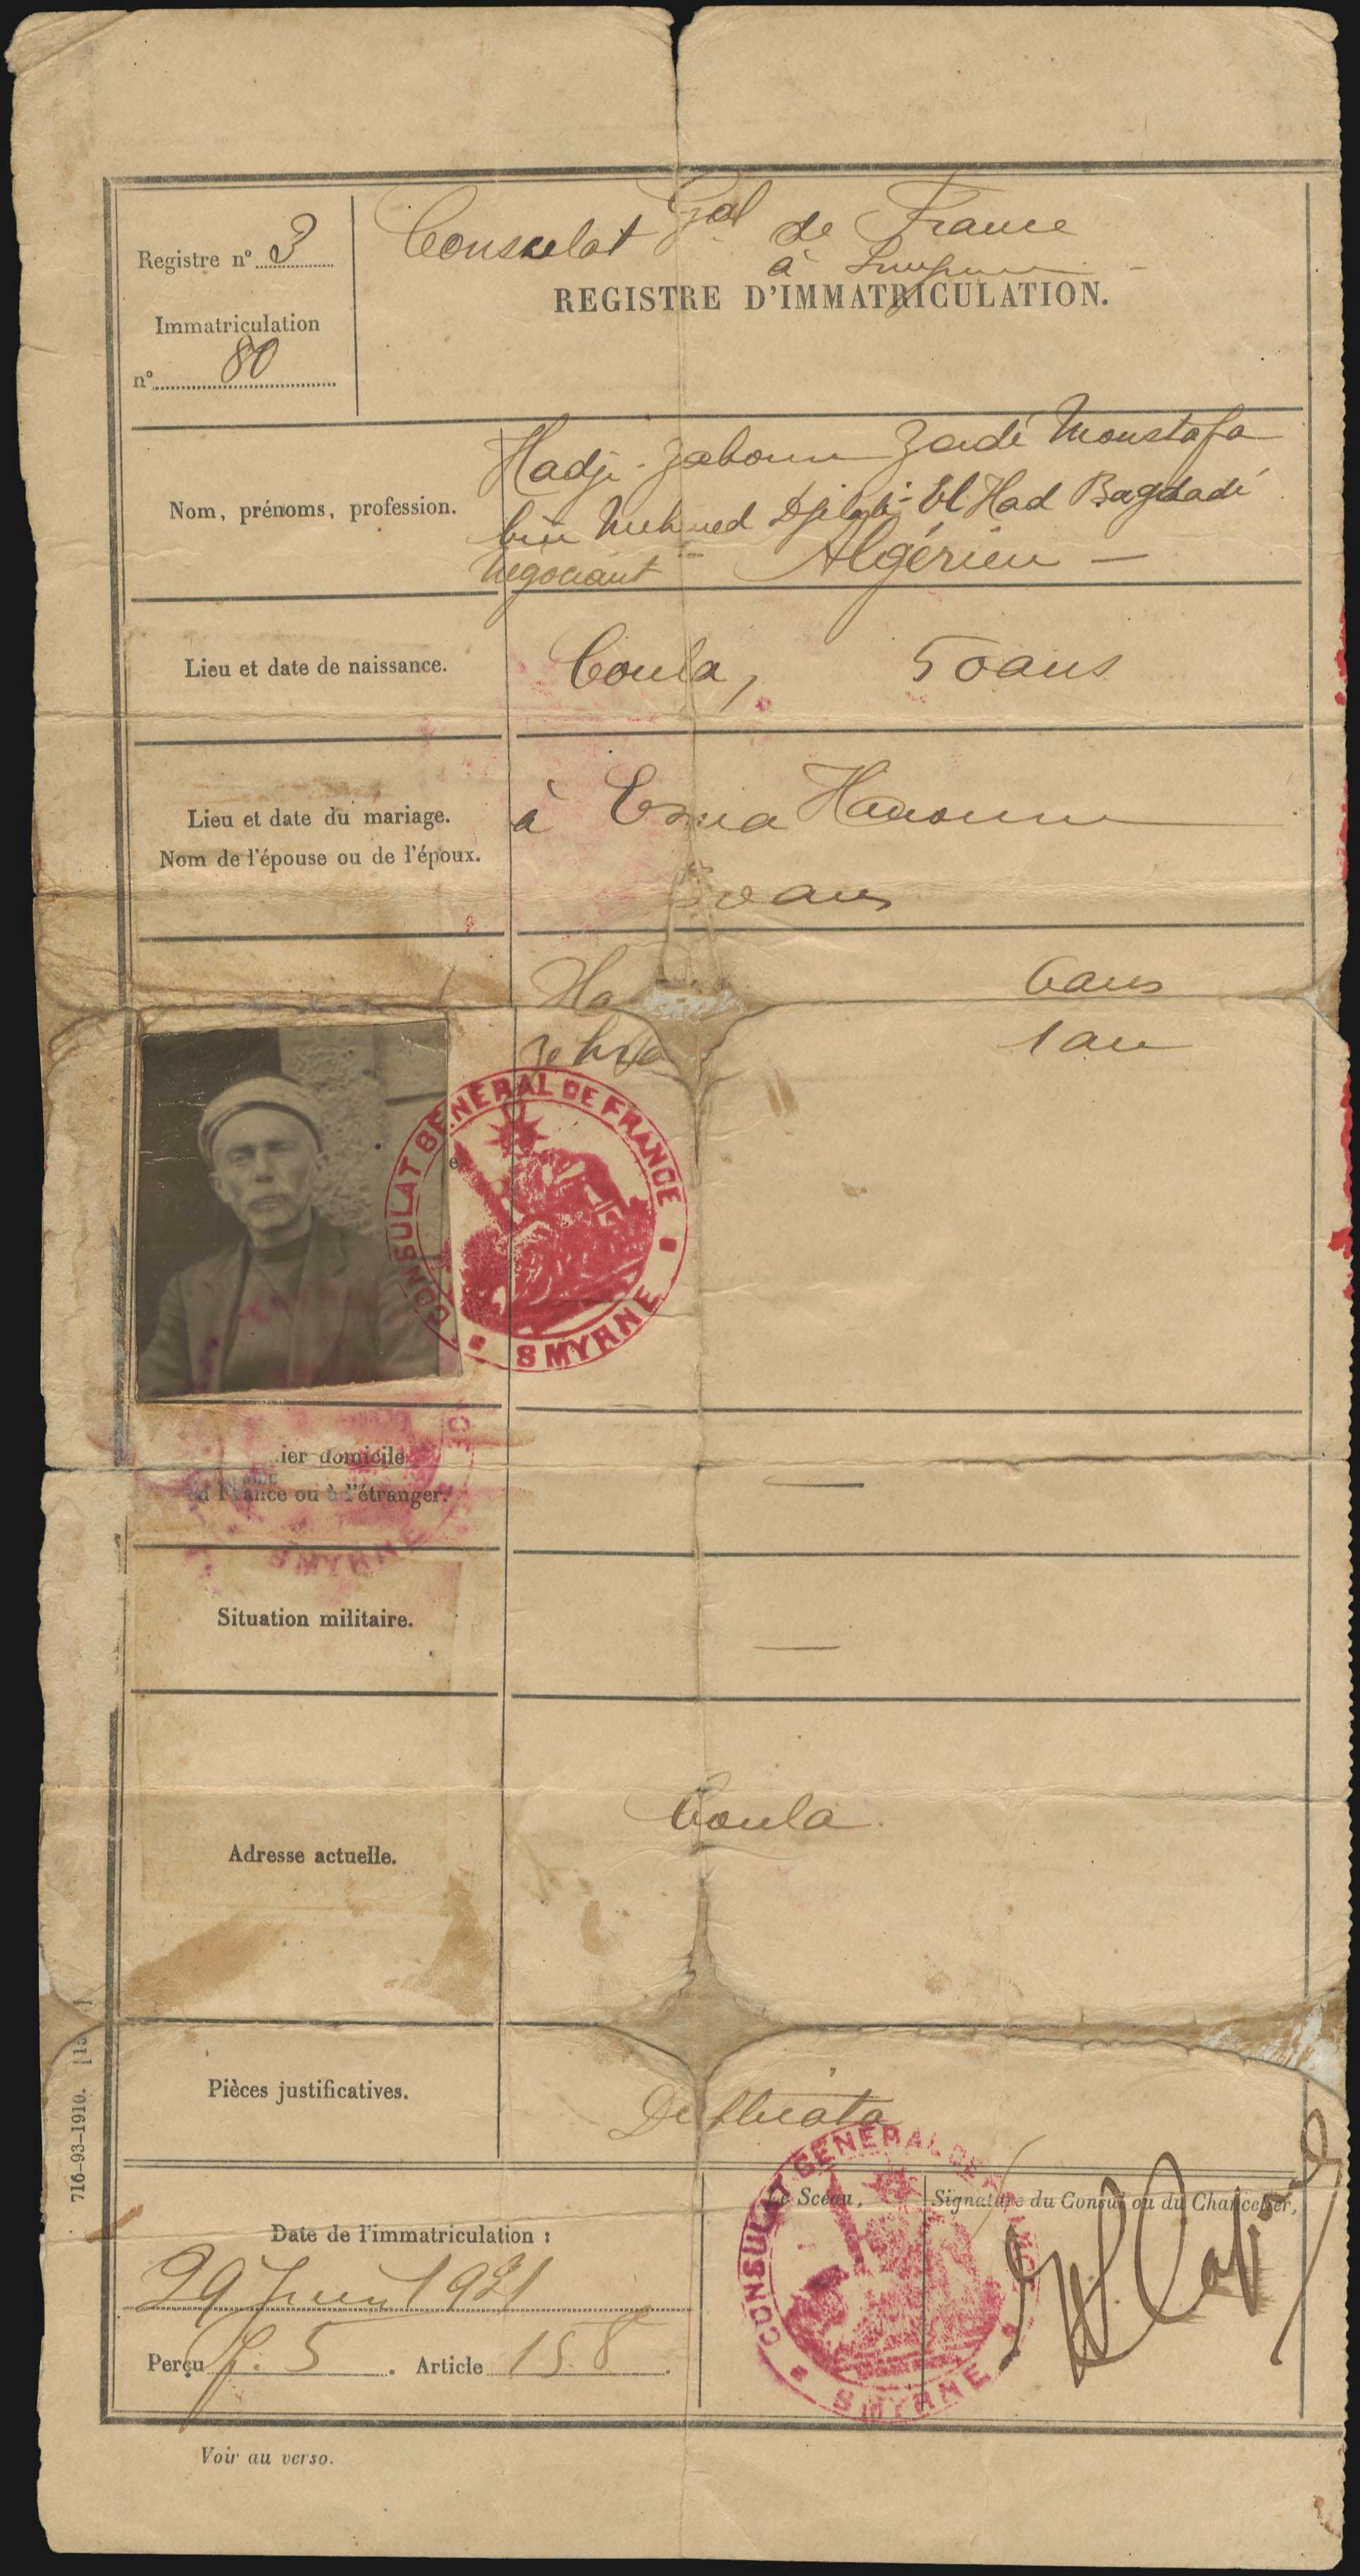 Consulat Gal de France
Registre n° 3
à Smyrne
REGISTRE D'IMMATRICULATION.
Immatriculation
n° 80
Nom, prénoms, profession.
Hadji Zaboun Zadé Moustafa
bin Mehmed Djilali El Had Bagdadi
négociant - Algérien -
Lieu et date de naissance.
Coula, 50 ans
Lieu et date du mariage.
Nom de l'épouse ou de l'époux.
à Esma Hanoum
ans
Ha 6 ans
Zehra 1 an
CONSULAT GÉNÉRAL DE FRANCE
SMYRNE
ier domicile
en France ou à l'étranger.
SMYRNE
Situation militaire.
Adresse actuelle.
Coula.
Pièces justificatives.
716-93-1910.
Le Sceau,
Signature du Consul ou du Chancelier,
CONSULAT GÉNÉRAL DE FRANCE
SMYRNE
Date de l'immatriculation :
29 Juin 1921
Perçu f. 5. Article 158.
Voir au verso.